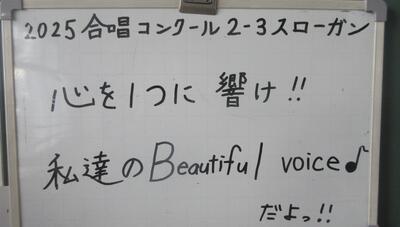 2025 合唱コンクール 2-3 スローガン
心を1つに 響け!!
私達のBeautiful voice♪
だよっ!!